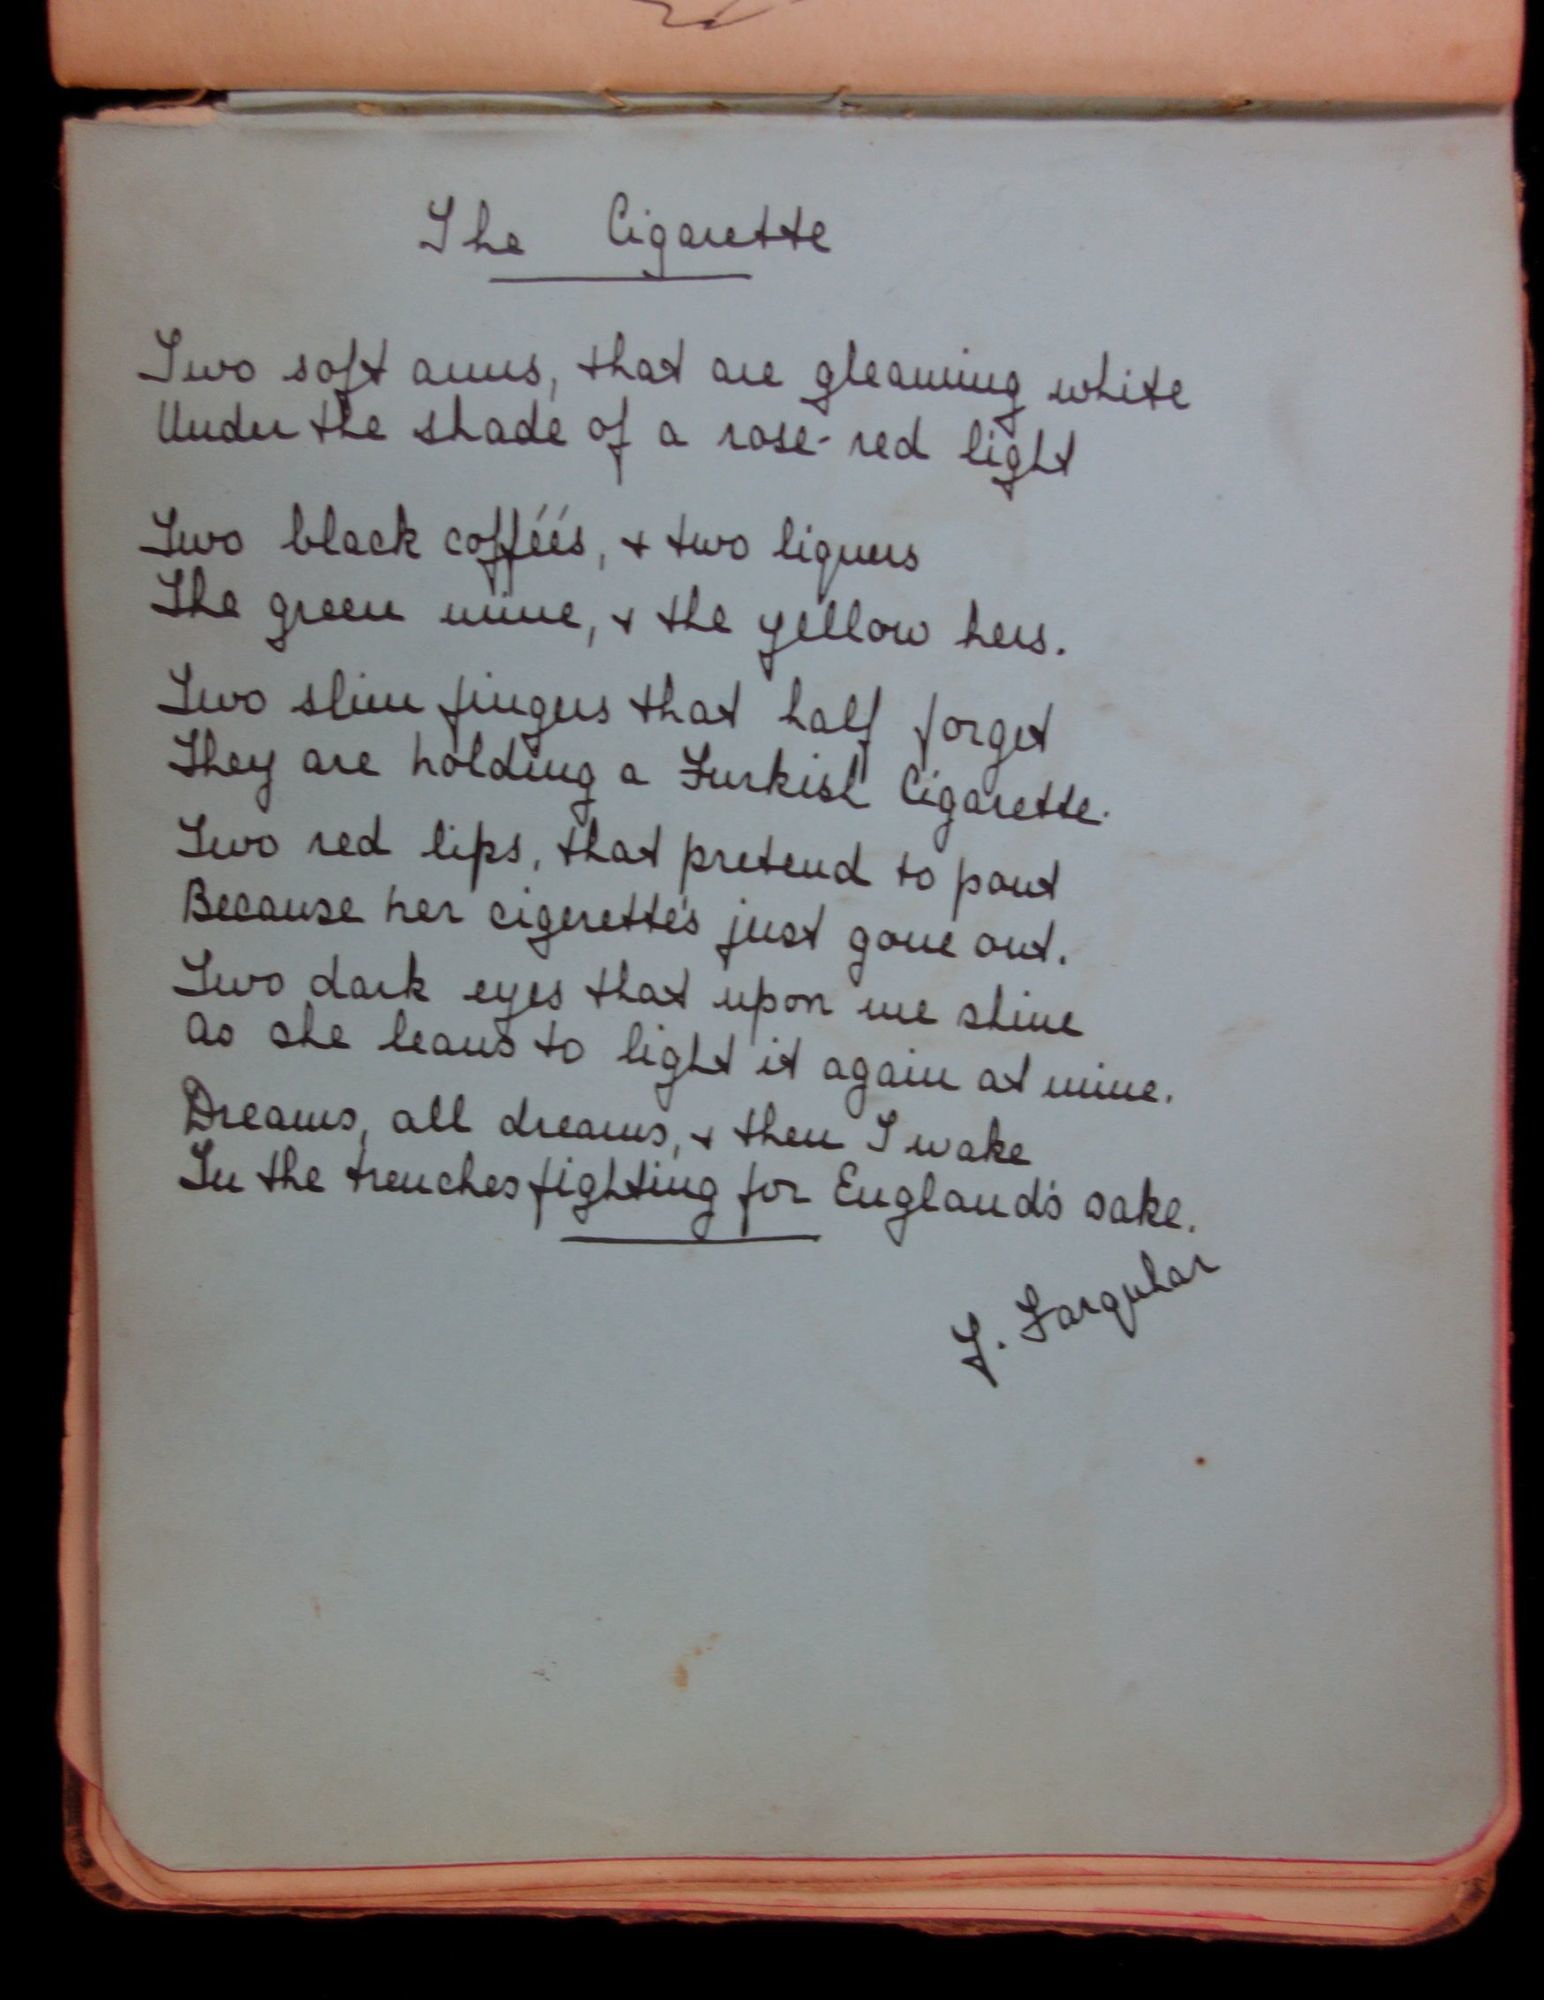 The Cigarette
Two soft arms, that are gleaming white
Under the shade of a rose-red light
Two black cofféés, & two liquers
The green mine, & the yellow hers.
Two slim fingers that half forget
They are holding a Turkish Cigarette.
Two red lips, that pretend to pout
Because her cigerette's just gone out.
Two dark eyes that upon me shine
As she leans to light it again at mine.
Dreams, all dreams, & then I wake
In the trenches fighting for England's sake.
F. Farquhar